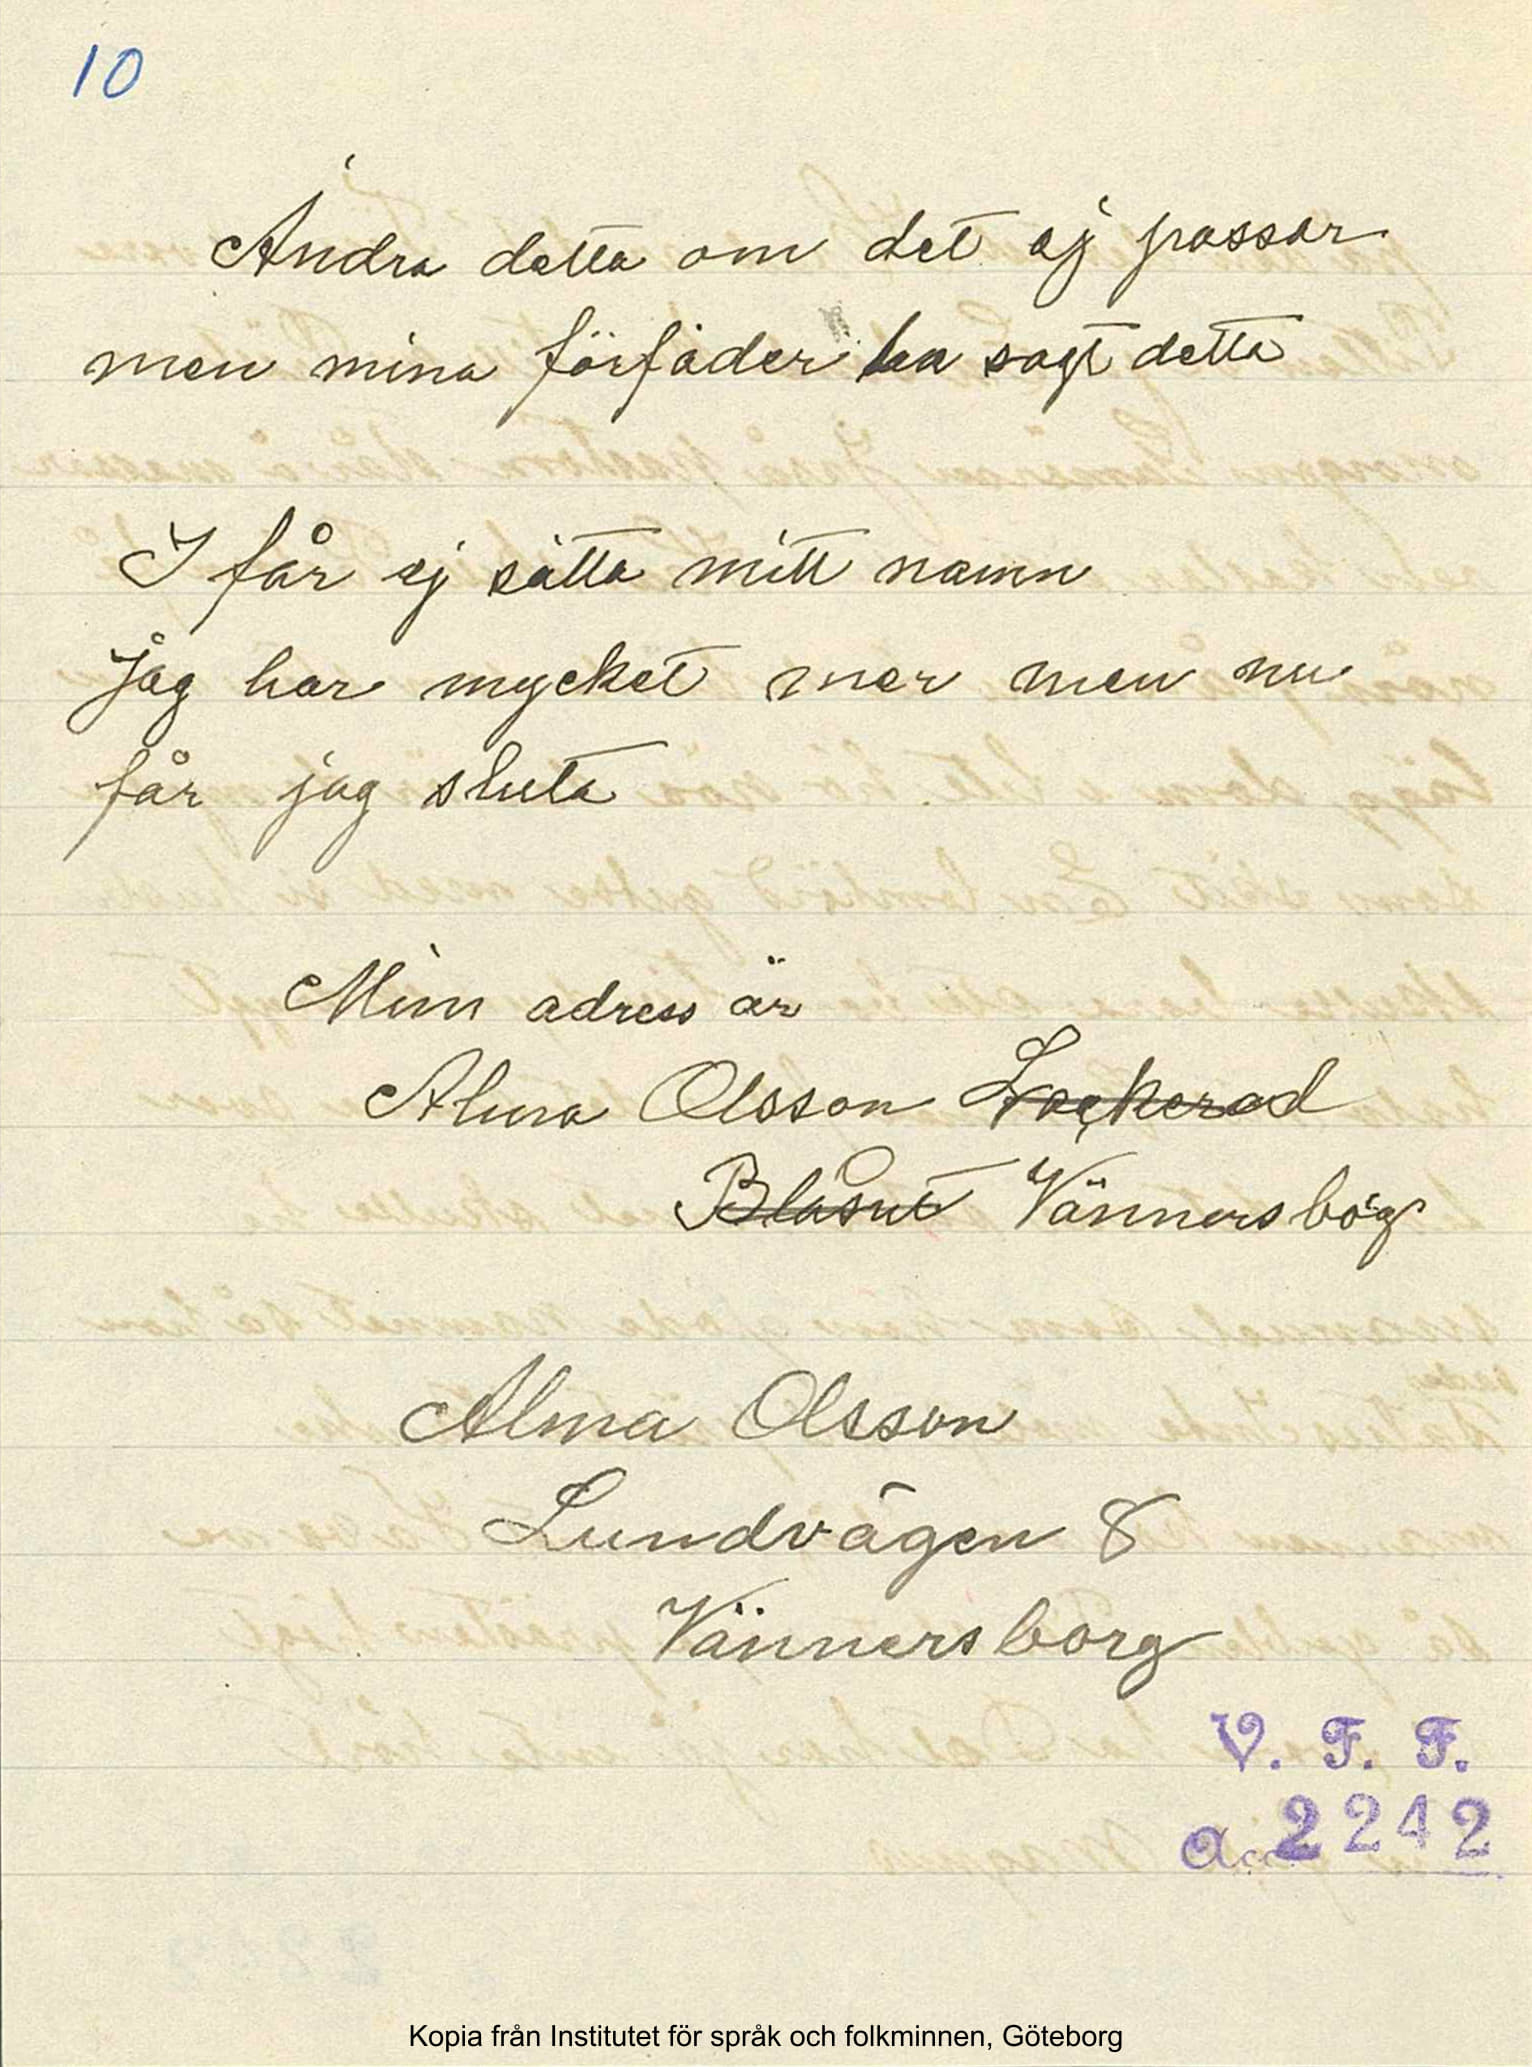 10
Ändra detta om det ej passar
men mina förfäder ha sagt detta
I får ej sätta mitt namn
Jag har mycket mer men nu
får jag sluta
Min adress är
Alma Olsson Lackerad
Blåsut Vännersborg
Alma Olsson
Lundvägen 8
Vännersborg
V. F. F.
acc. 2242
Kopia från Institutet för språk och folkminnen, Göteborg